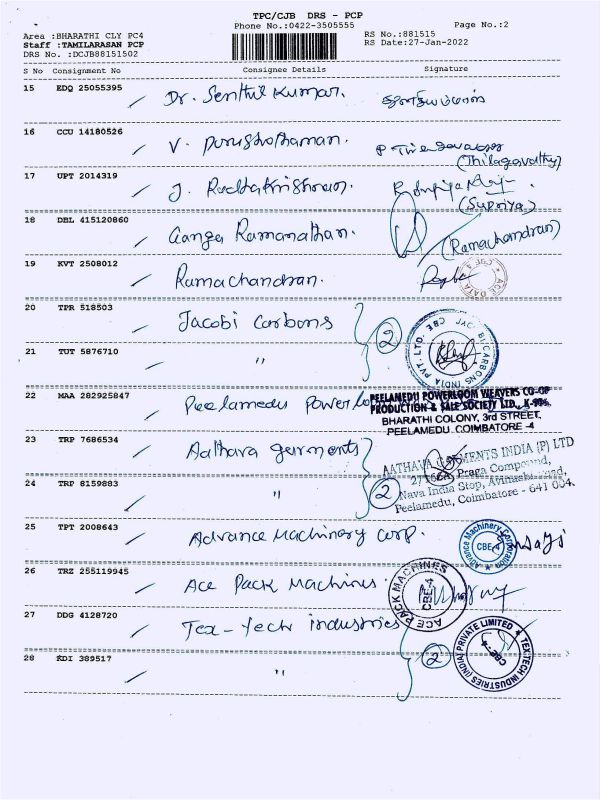 TPC/CJB DRS - PCP
Phone No.:0422-3505555
Page No.:2
Area :BHARATHI CLY PC4
Staff :TAMILARASAN PCP
DRS No. :DCJB88151502
RS No.:881515
RS Date:27-Jan-2022
S No Consignment No Consignee Details Signature
15 EDQ 25055395 Dr. Senthil Kumar.
16 CCU 14180526 V. Purushothaman.
(Thilagavathy)
17 UPT 2014319 J. Radhakrishnan.
(Supriya)
18 DBL 415120860 Ganga Ramanathan.
(Ramachandran)
19 KVT 2508012 Ramachandran.
ACE DATA CBE 4
20 TPR 518503 Jacobi Carbons
2
JACOBI CARBONS INDIA PVT LTD. CBE
21 TUT 5876710 "
22 MAA 282925847 Peelamedu Powerloom
PEELAMEDU POWERLOOM WEAVERS CO-OP
PRODUCTION & SALE SOCIETY LTD.,
BHARATHI COLONY, 3rd STREET,
PEELAMEDU, COIMBATORE -4
23 TRP 7686534 Aathava garments
AATHAVA GARMENTS INDIA (P) LTD
Praga Compound,
Nava India Stop, Avinashi Road,
Peelamedu, Coimbatore - 641 004.
24 TRP 8159883 "
2
25 TPT 2008643 Advance Machinery Corp.
Advance Machinery Corporation
CBE-4
26 TRZ 255119945 Ace Pack Machines.
ACE PACK MACHINES
CBE-4
27 DDG 4128720 Tex-Tech industries
TEXTECH INDUSTRIES (INDIA) PRIVATE LIMITED
CBE-4
28 KDI 389517 "
2